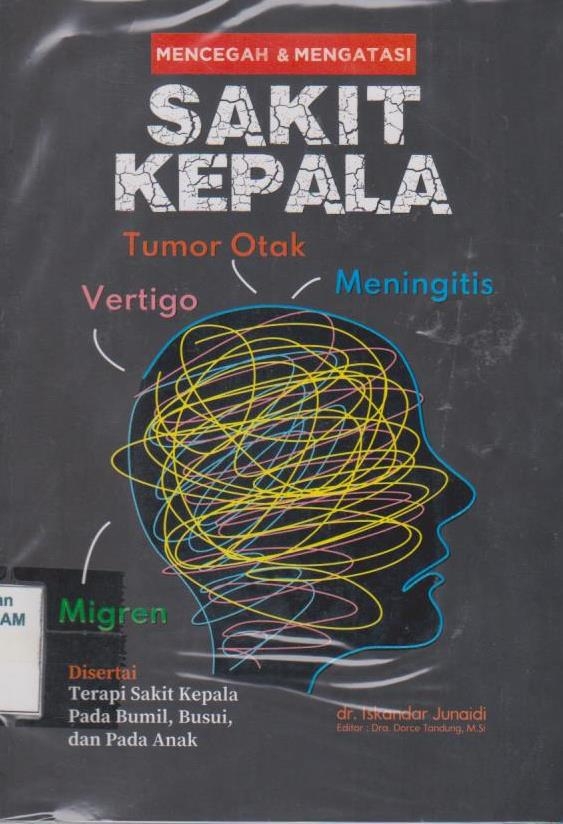 MENCEGAH & MENGATASI
SAKIT
KEPALA
Tumor Otak
Meningitis
Vertigo
Migren
AM
Disertai
Terapi Sakit Kepala
Pada Bumil, Busui,
dan Pada Anak
dr. Iskandar Junaidi
Editor : Dra. Dorce Tandung, M.Si